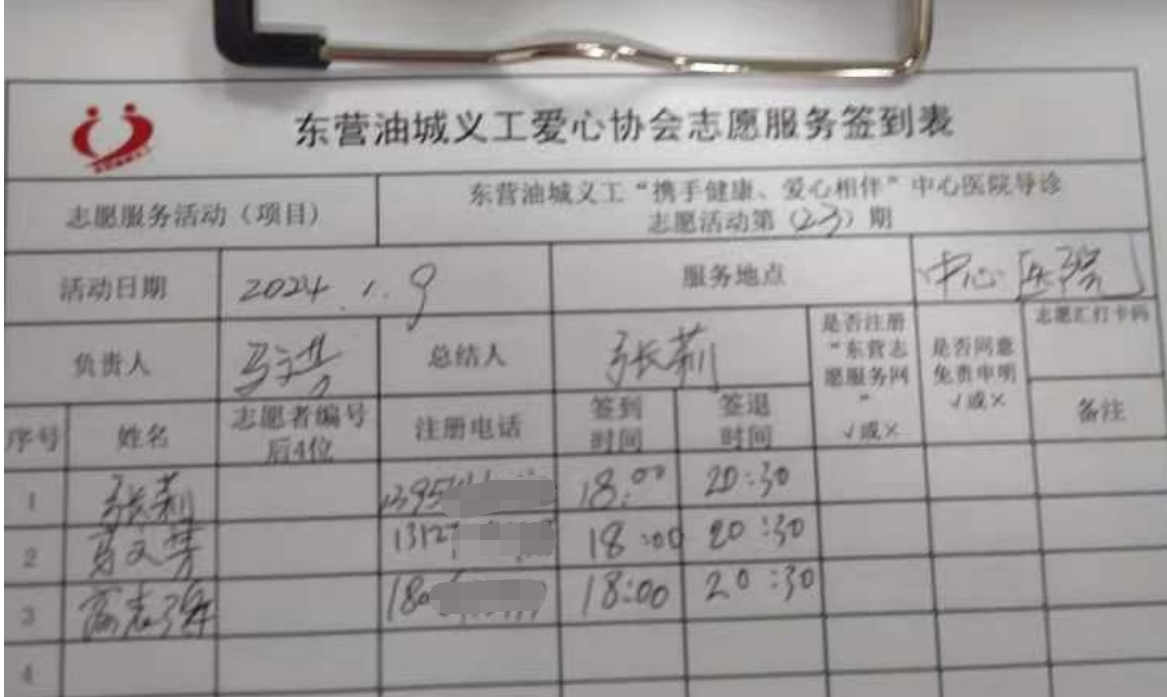 东营油城义工爱心协会志愿服务签到表
志愿服务活动（项目）
东营油城义工“携手健康、爱心相伴”中心医院导诊
志愿活动第（23）期
活动日期 2024.1.9 服务地点 中心医院
负责人 总结人 张莉
是否注册
“东营志
愿服务网
”
√或×
是否同意
免责申明
√或×
志愿汇打卡码
序号 姓名
志愿者编号
后4位
注册电话
签到
时间
签退
时间
备注
1 张莉 1395 18:00 20:30
2 1312 18:00 20:30
3 180 18:00 20:30
4